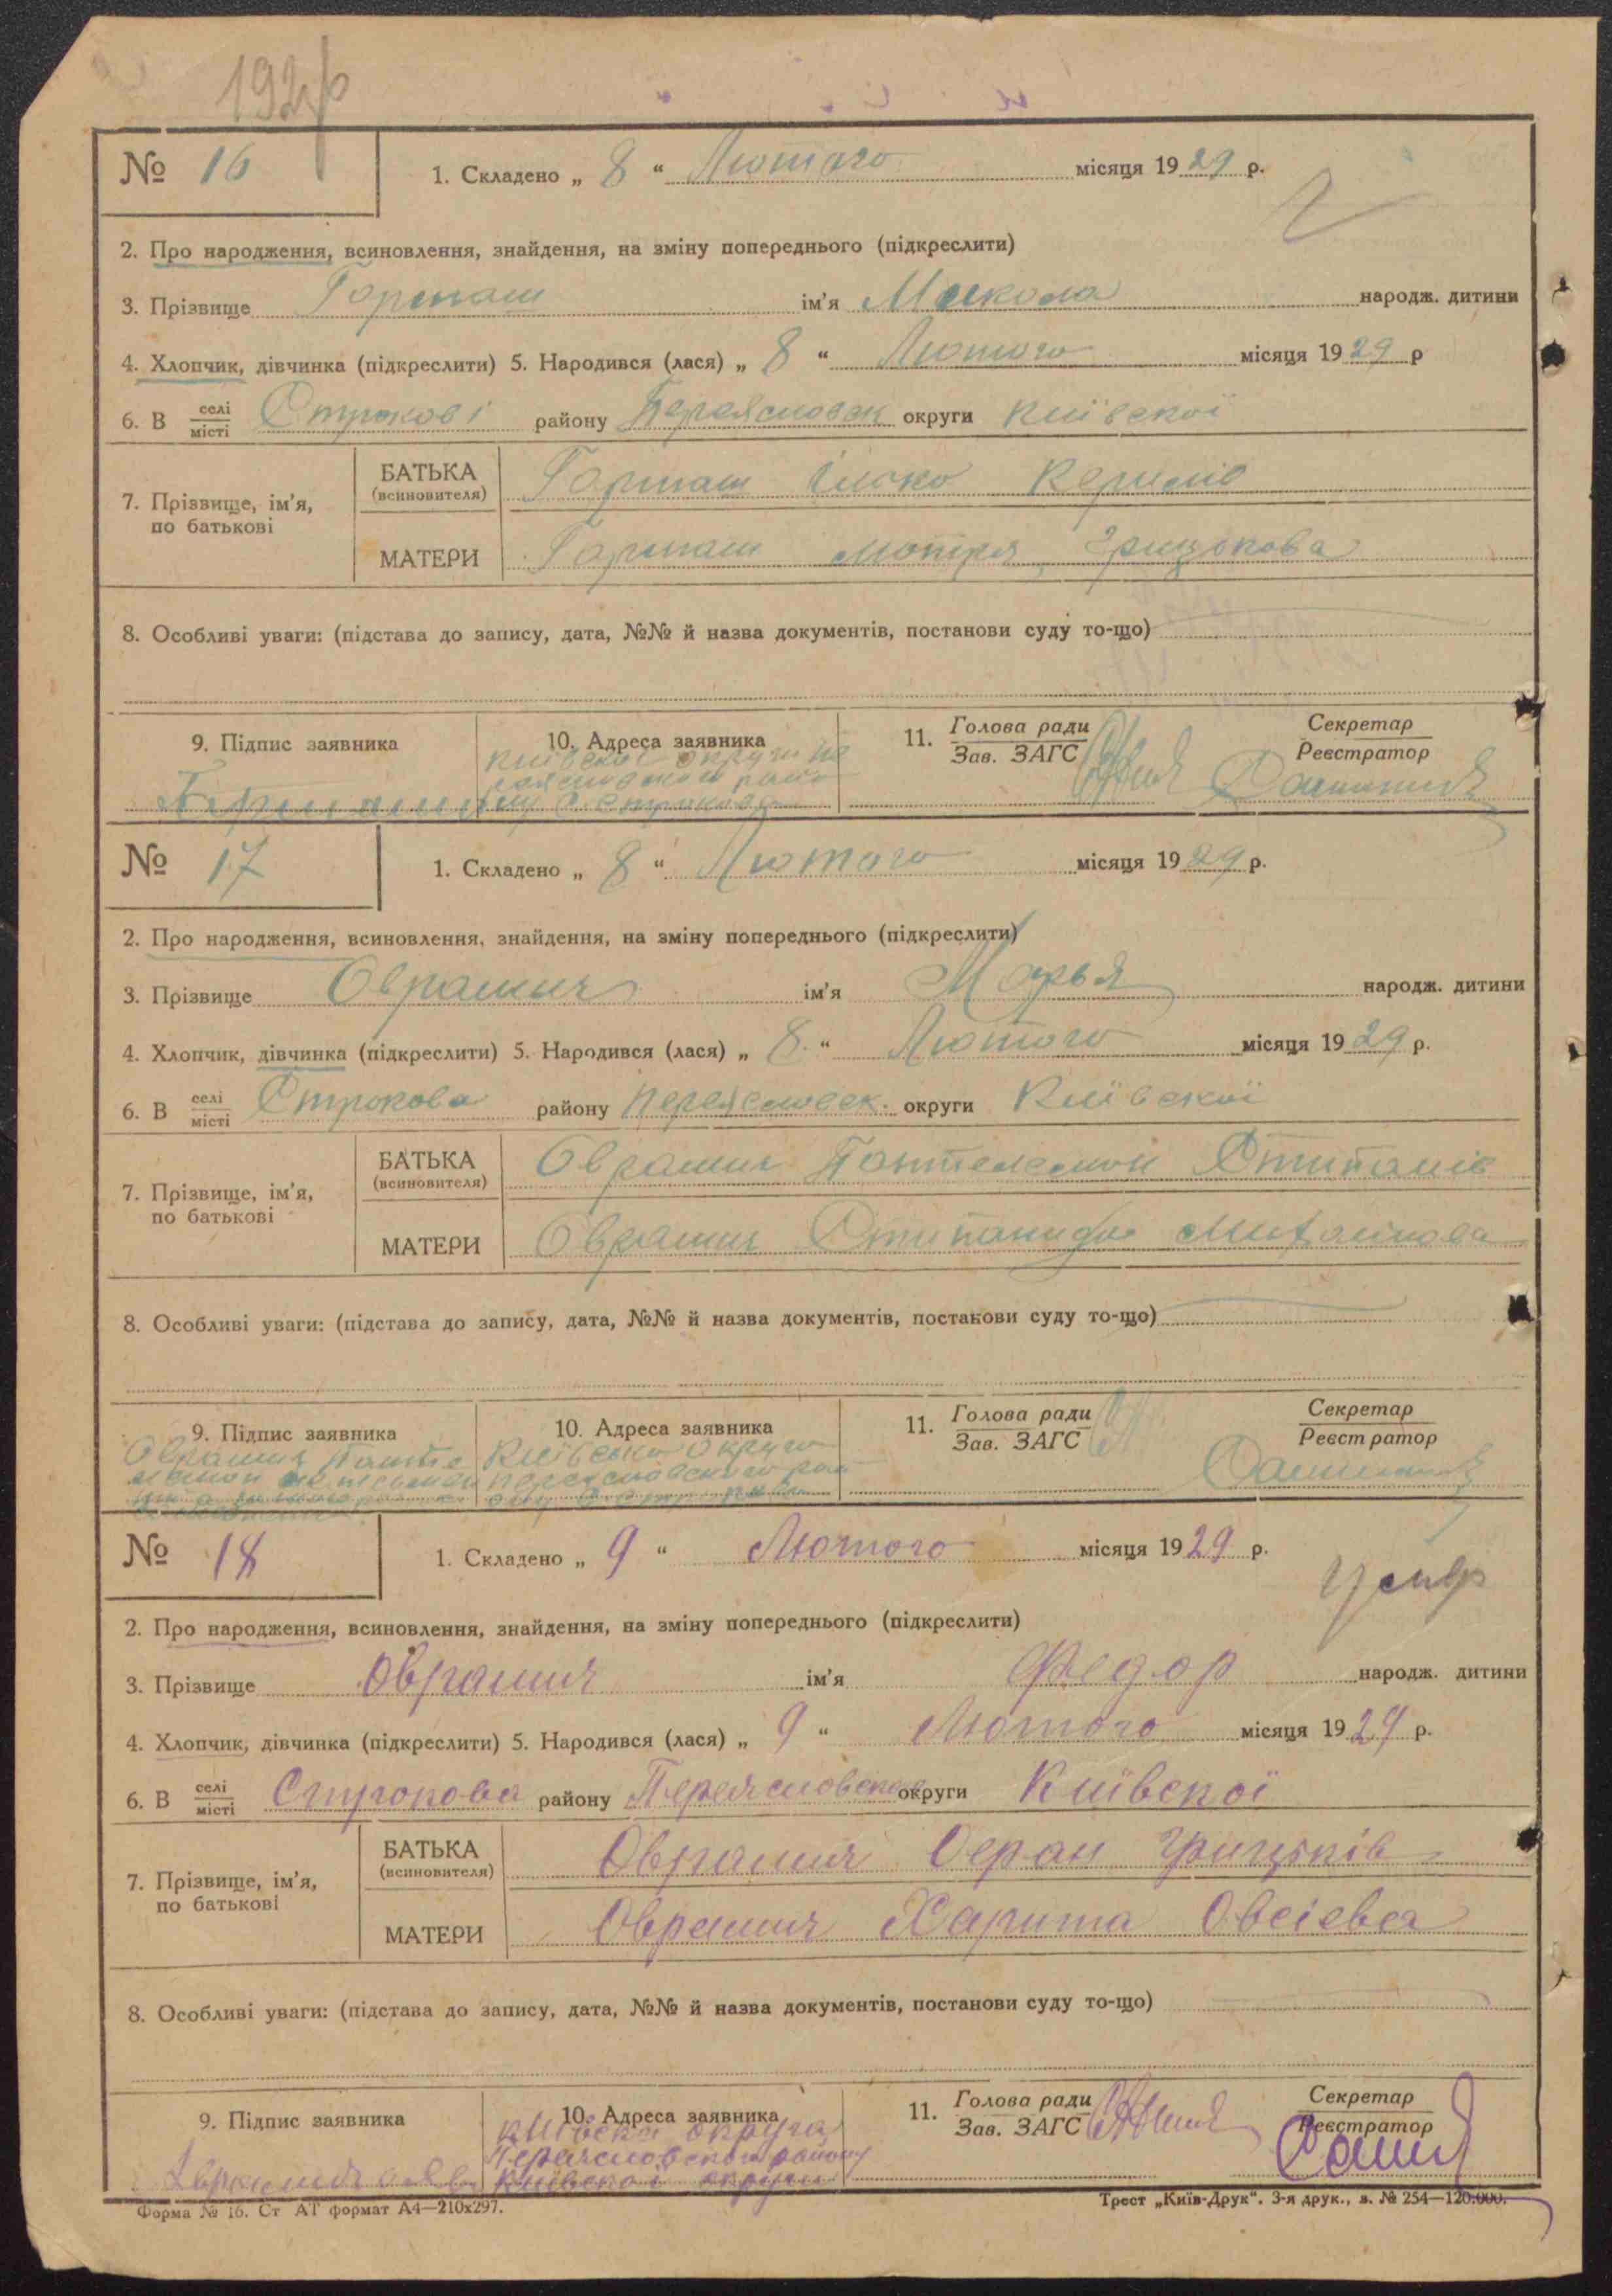 № 16
1. Складено „ 8 “ Лютого місяця 1929 р.
2. Про народження, всиновлення, знайдення, на зміну попереднього (підкреслити)
3. Прізвище Гармаш ім’я Микола народж. дитини
4. Хлопчик, дівчинка (підкреслити) 5. Народився (лася) „ 8 “ Лютого місяця 1929 р
6. В селі/місті Строкові району Переясловск округи Київскої
7. Прізвище, ім’я, по батькові
БАТЬКА (всиновителя) Гармаш
МАТЕРИ Гармаш Мотря Грицькова
8. Особливі уваги: (підстава до запису, дата, №№ й назва документів, постанови суду то-що)
9. Підпис заявника
10. Адреса заявника
11. Голова ради / Зав. ЗАГС
Секретар / Реєстратор
№ 17
1. Складено „ 8 “ Лютого місяця 1929 р.
2. Про народження, всиновлення, знайдення, на зміну попереднього (підкреслити)
3. Прізвище Оврамич ім’я Марья народж. дитини
4. Хлопчик, дівчинка (підкреслити) 5. Народився (лася) „ 8 “ Лютого місяця 1929 р.
6. В селі/місті Строкова району Переясловск. округи Київскої
7. Прізвище, ім’я, по батькові
БАТЬКА (всиновителя) Оврамич Пантелемон Стипанів
МАТЕРИ Оврамич Михайлова
8. Особливі уваги: (підстава до запису, дата, №№ й назва документів, постанови суду то-що)
9. Підпис заявника
10. Адреса заявника
11. Голова ради / Зав. ЗАГС
Секретар / Реєстратор
№ 18
1. Складено „ 9 “ Лютого місяця 1929 р.
2. Про народження, всиновлення, знайдення, на зміну попереднього (підкреслити)
3. Прізвище Оврамич ім’я Федор народж. дитини
4. Хлопчик, дівчинка (підкреслити) 5. Народився (лася) „ 9 “ Лютого місяця 1929 р.
6. В селі/місті Строкова району Переясловское округи Київскої
7. Прізвище, ім’я, по батькові
БАТЬКА (всиновителя) Оврамич Грицьків
МАТЕРИ Оврамич Харита Овсіева
8. Особливі уваги: (підстава до запису, дата, №№ й назва документів, постанови суду то-що)
9. Підпис заявника
10. Адреса заявника
Київска округа
Переясловского району
Київскої округи
11. Голова ради / Зав. ЗАГС
Секретар / Реєстратор
Форма № 16. Ст АТ формат А4—210x297.
Трест „Київ-Друк“. 3-я друк., з. № 254—120.000.